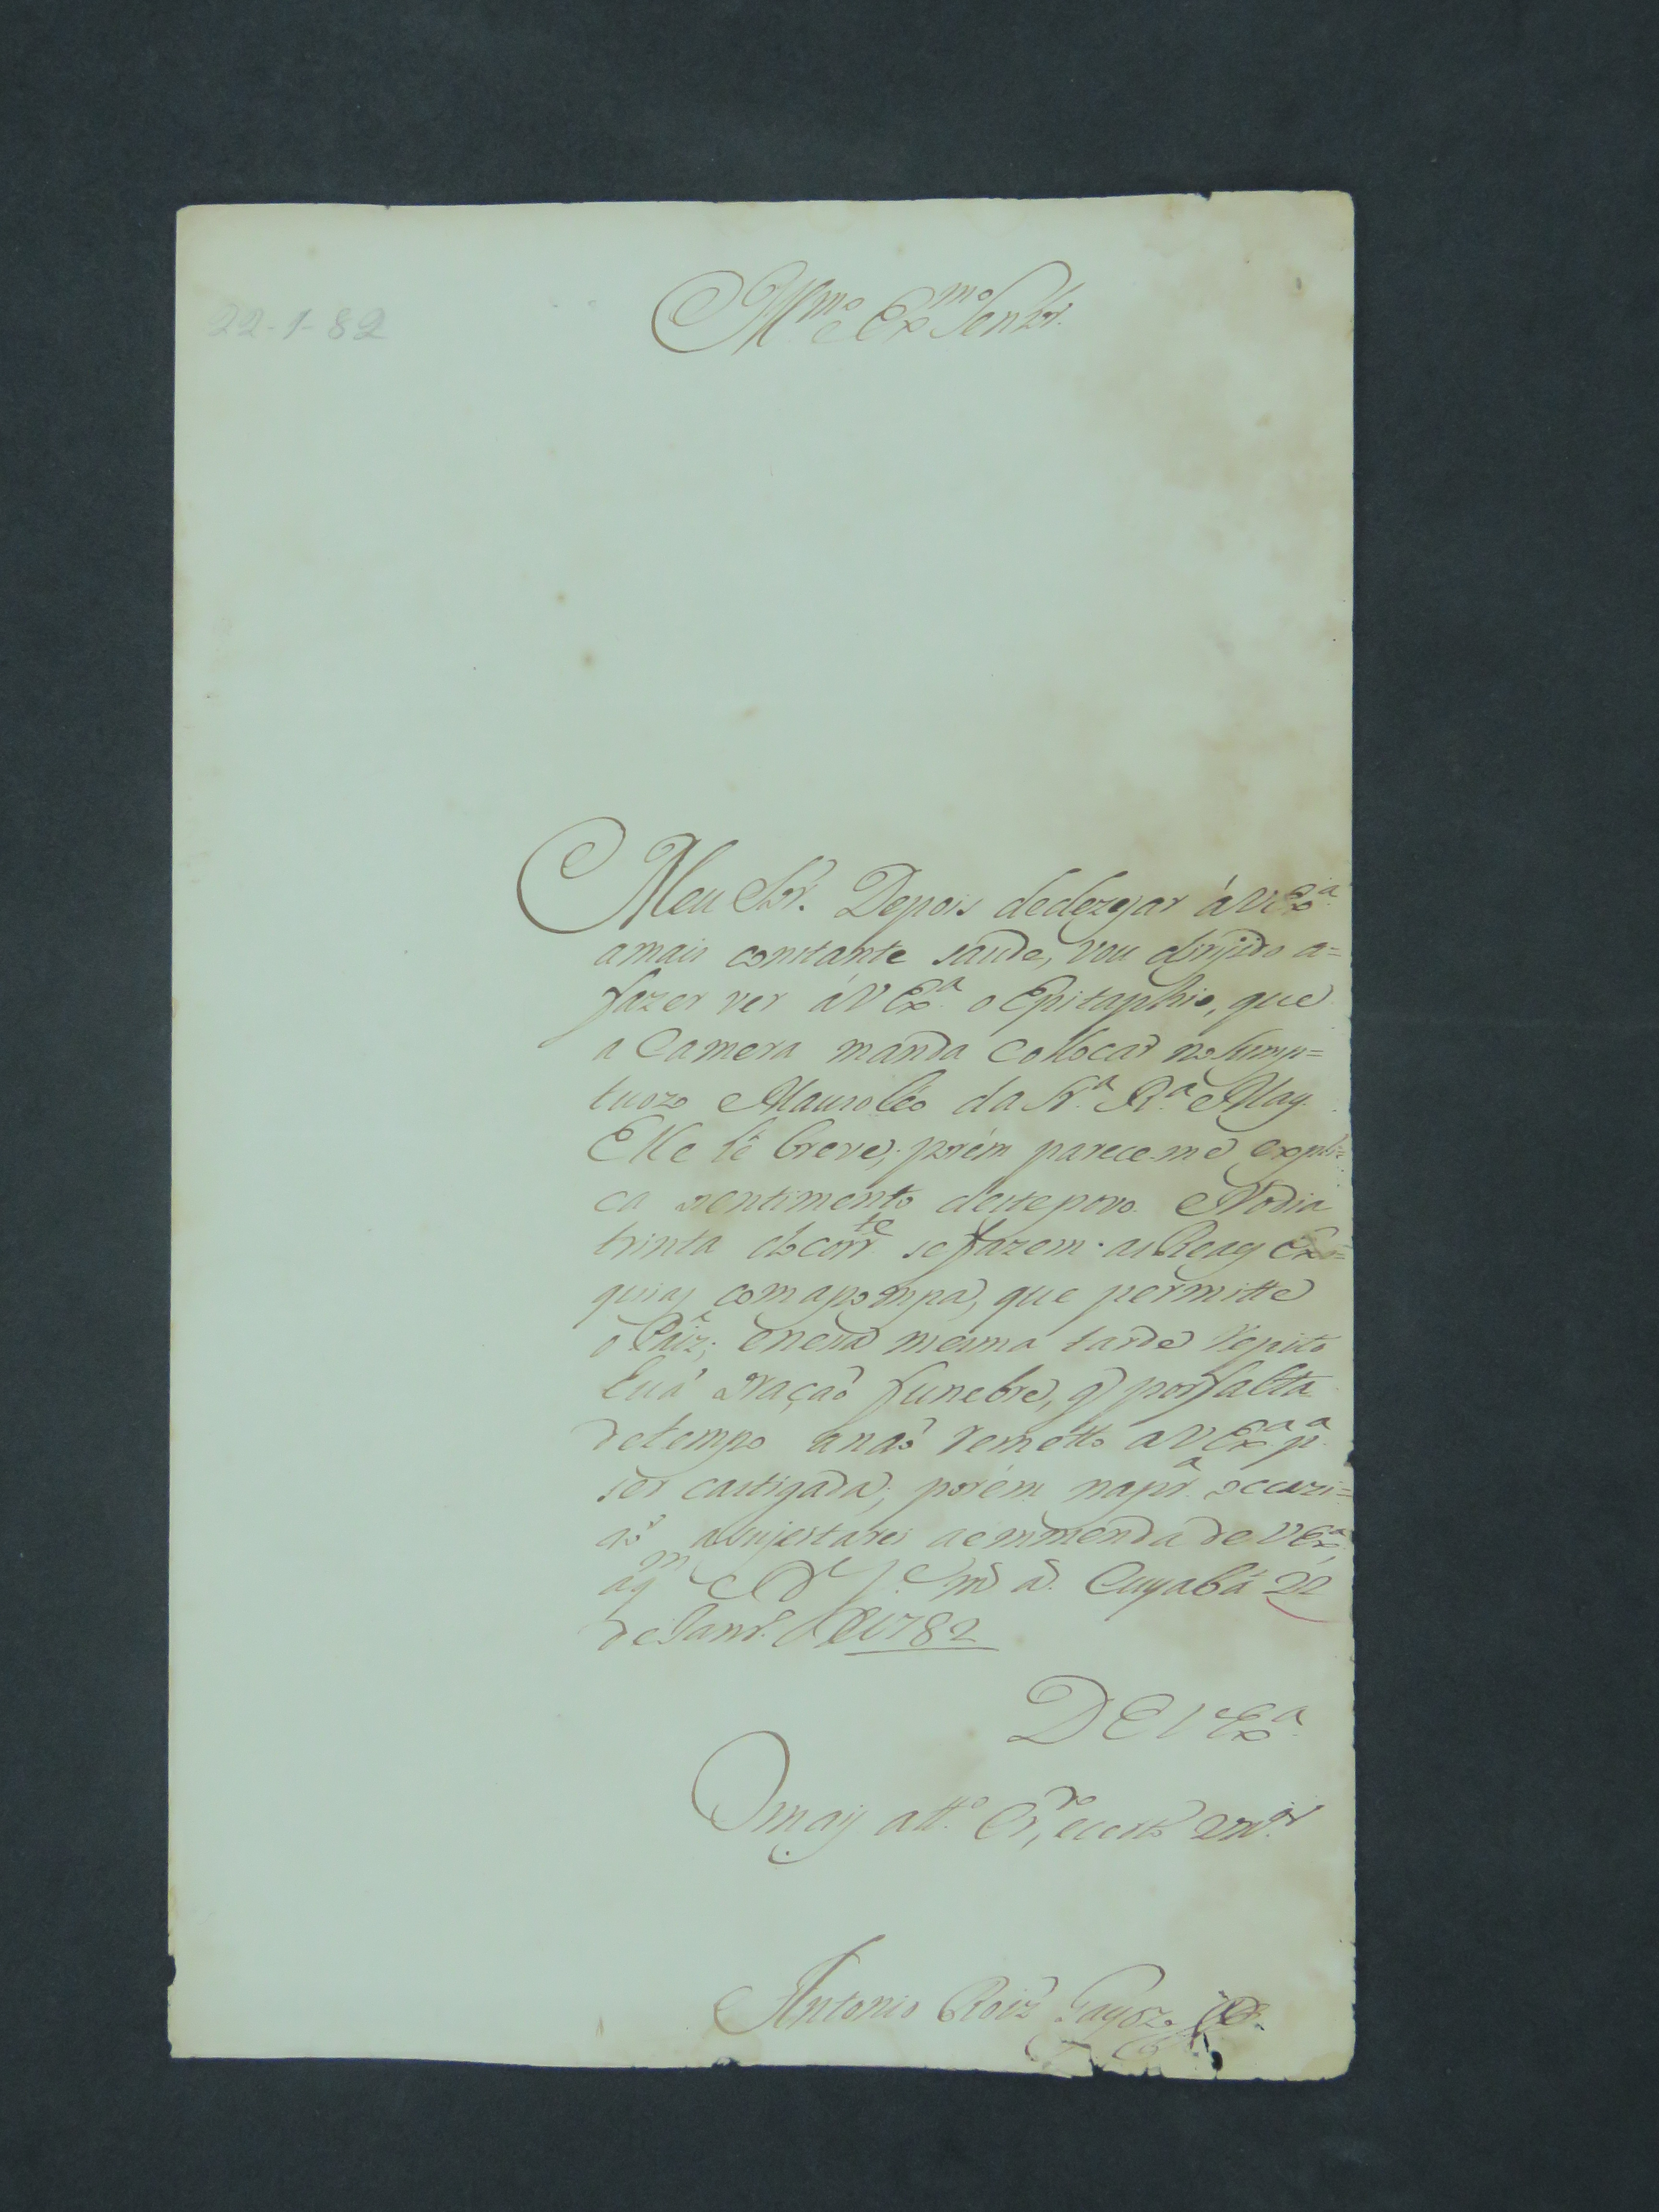 22-1-82
Illmo e Exmo Senhr.
Meu Snr. Depois dedezejar á V Exa
amais constante saude, vou dirijido a=
fazer ver á V Exa o Epitaphio, que
a Camera manda Collocar no sump=
tuozo Mausoléo da Sra Ra May.
Elle hé breve, porém parece-me expli=
ca sentimento deste povo. Nodia
trinta do corrte se fazem as Reaes Exe=
quias comapompa, que permitte
o Paiz; enesta mesma tarde repito
huá Oração funebre, q por falta
detempo anaõ remetto aV Exa pa
ser castigada; porém napra occazi=
aõ asujeitarei aemmenda de V Exa
aq Ds Gde ms as. Cuyabá 22
de Janro de 1782
DE V Exa
O mais atto Cro, ecerto Vnor
Antonio Roiz Gayozo